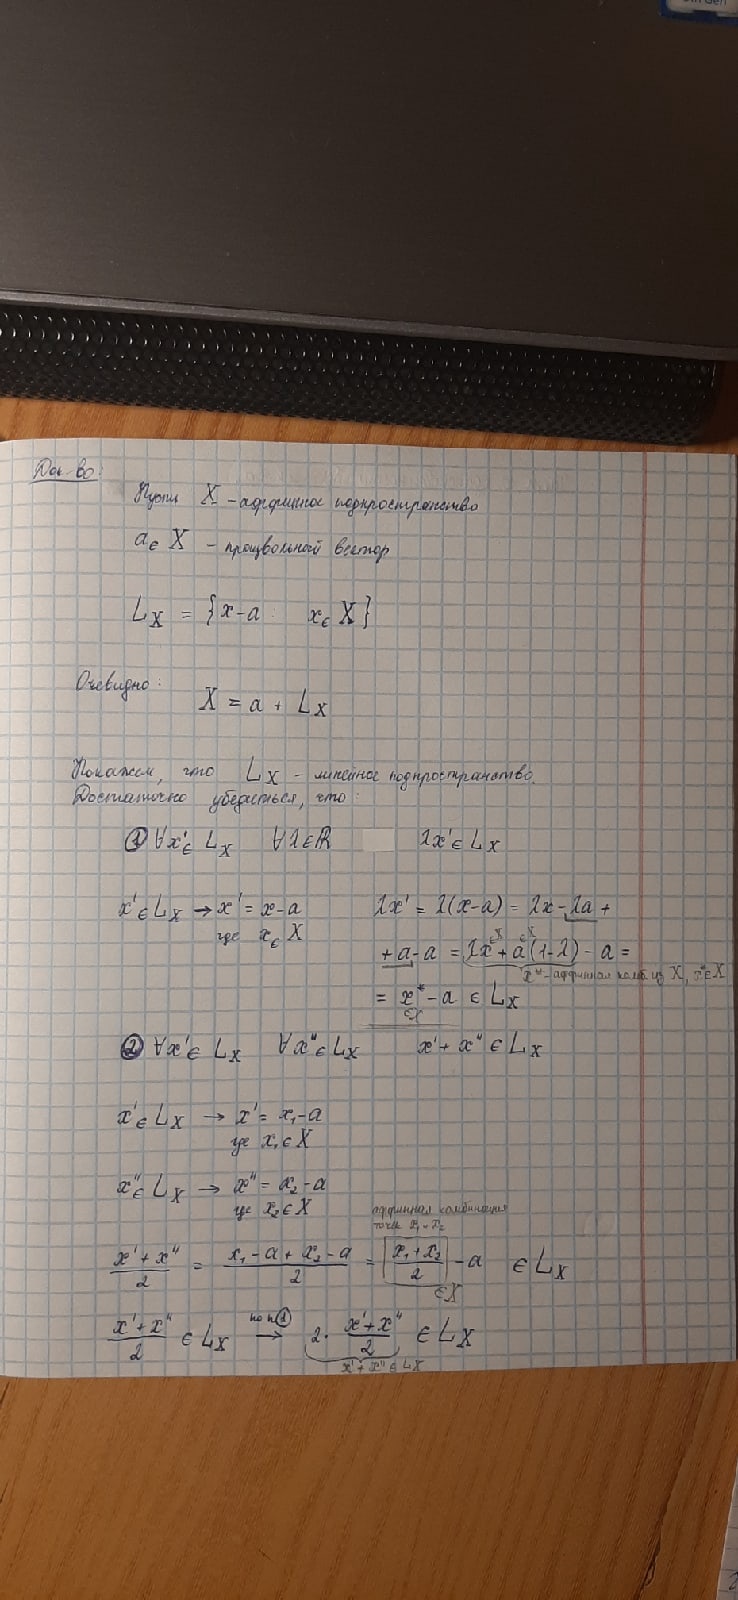 Док-во:
Пусть X - аффинное подпространство
a ∈ X - произвольный вектор
L_X = {x-a : x ∈ X}
Очевидно:
X = a + L_X
Покажем, что L_X - линейное подпространство.
Достаточно убедиться, что:
① ∀x' ∈ L_X ∀λ∈ℝ λx' ∈ L_X
x' ∈ L_X → x' = x-a
где x ∈ X
λx' = λ(x-a) = λx - λa +
+ a - a = λx + a(1-λ) - a =
∈X ∈X
x* - аффинная комб. из X, x* ∈ X
= x* - a ∈ L_X
∈X
② ∀x' ∈ L_X ∀x'' ∈ L_X x' + x'' ∈ L_X
x' ∈ L_X → x' = x₁ - a
где x₁ ∈ X
x'' ∈ L_X → x'' = x₂ - a
где x₂ ∈ X
аффинная комбинация
точек x₁ и x₂
(x' + x'')/2 = (x₁ - a + x₂ - a)/2 = (x₁ + x₂)/2 - a ∈ L_X
∈X
(x' + x'')/2 ∈ L_X по п① → 2 · (x' + x'')/2 ∈ L_X
x' + x'' ∈ L_X